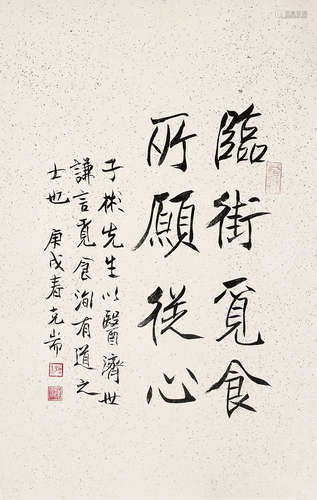 臨街覓食
所願從心
子彬先生以醫濟世
謙言覓食洵有道之
士也 庚戌春克耑